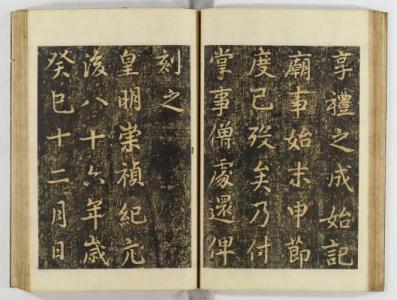 享禮之成始記
廟事始末申節
度已歿矣乃付
掌事僧處還俾
刻之
皇明崇禎紀元
後八十六年歲
癸巳十二月日